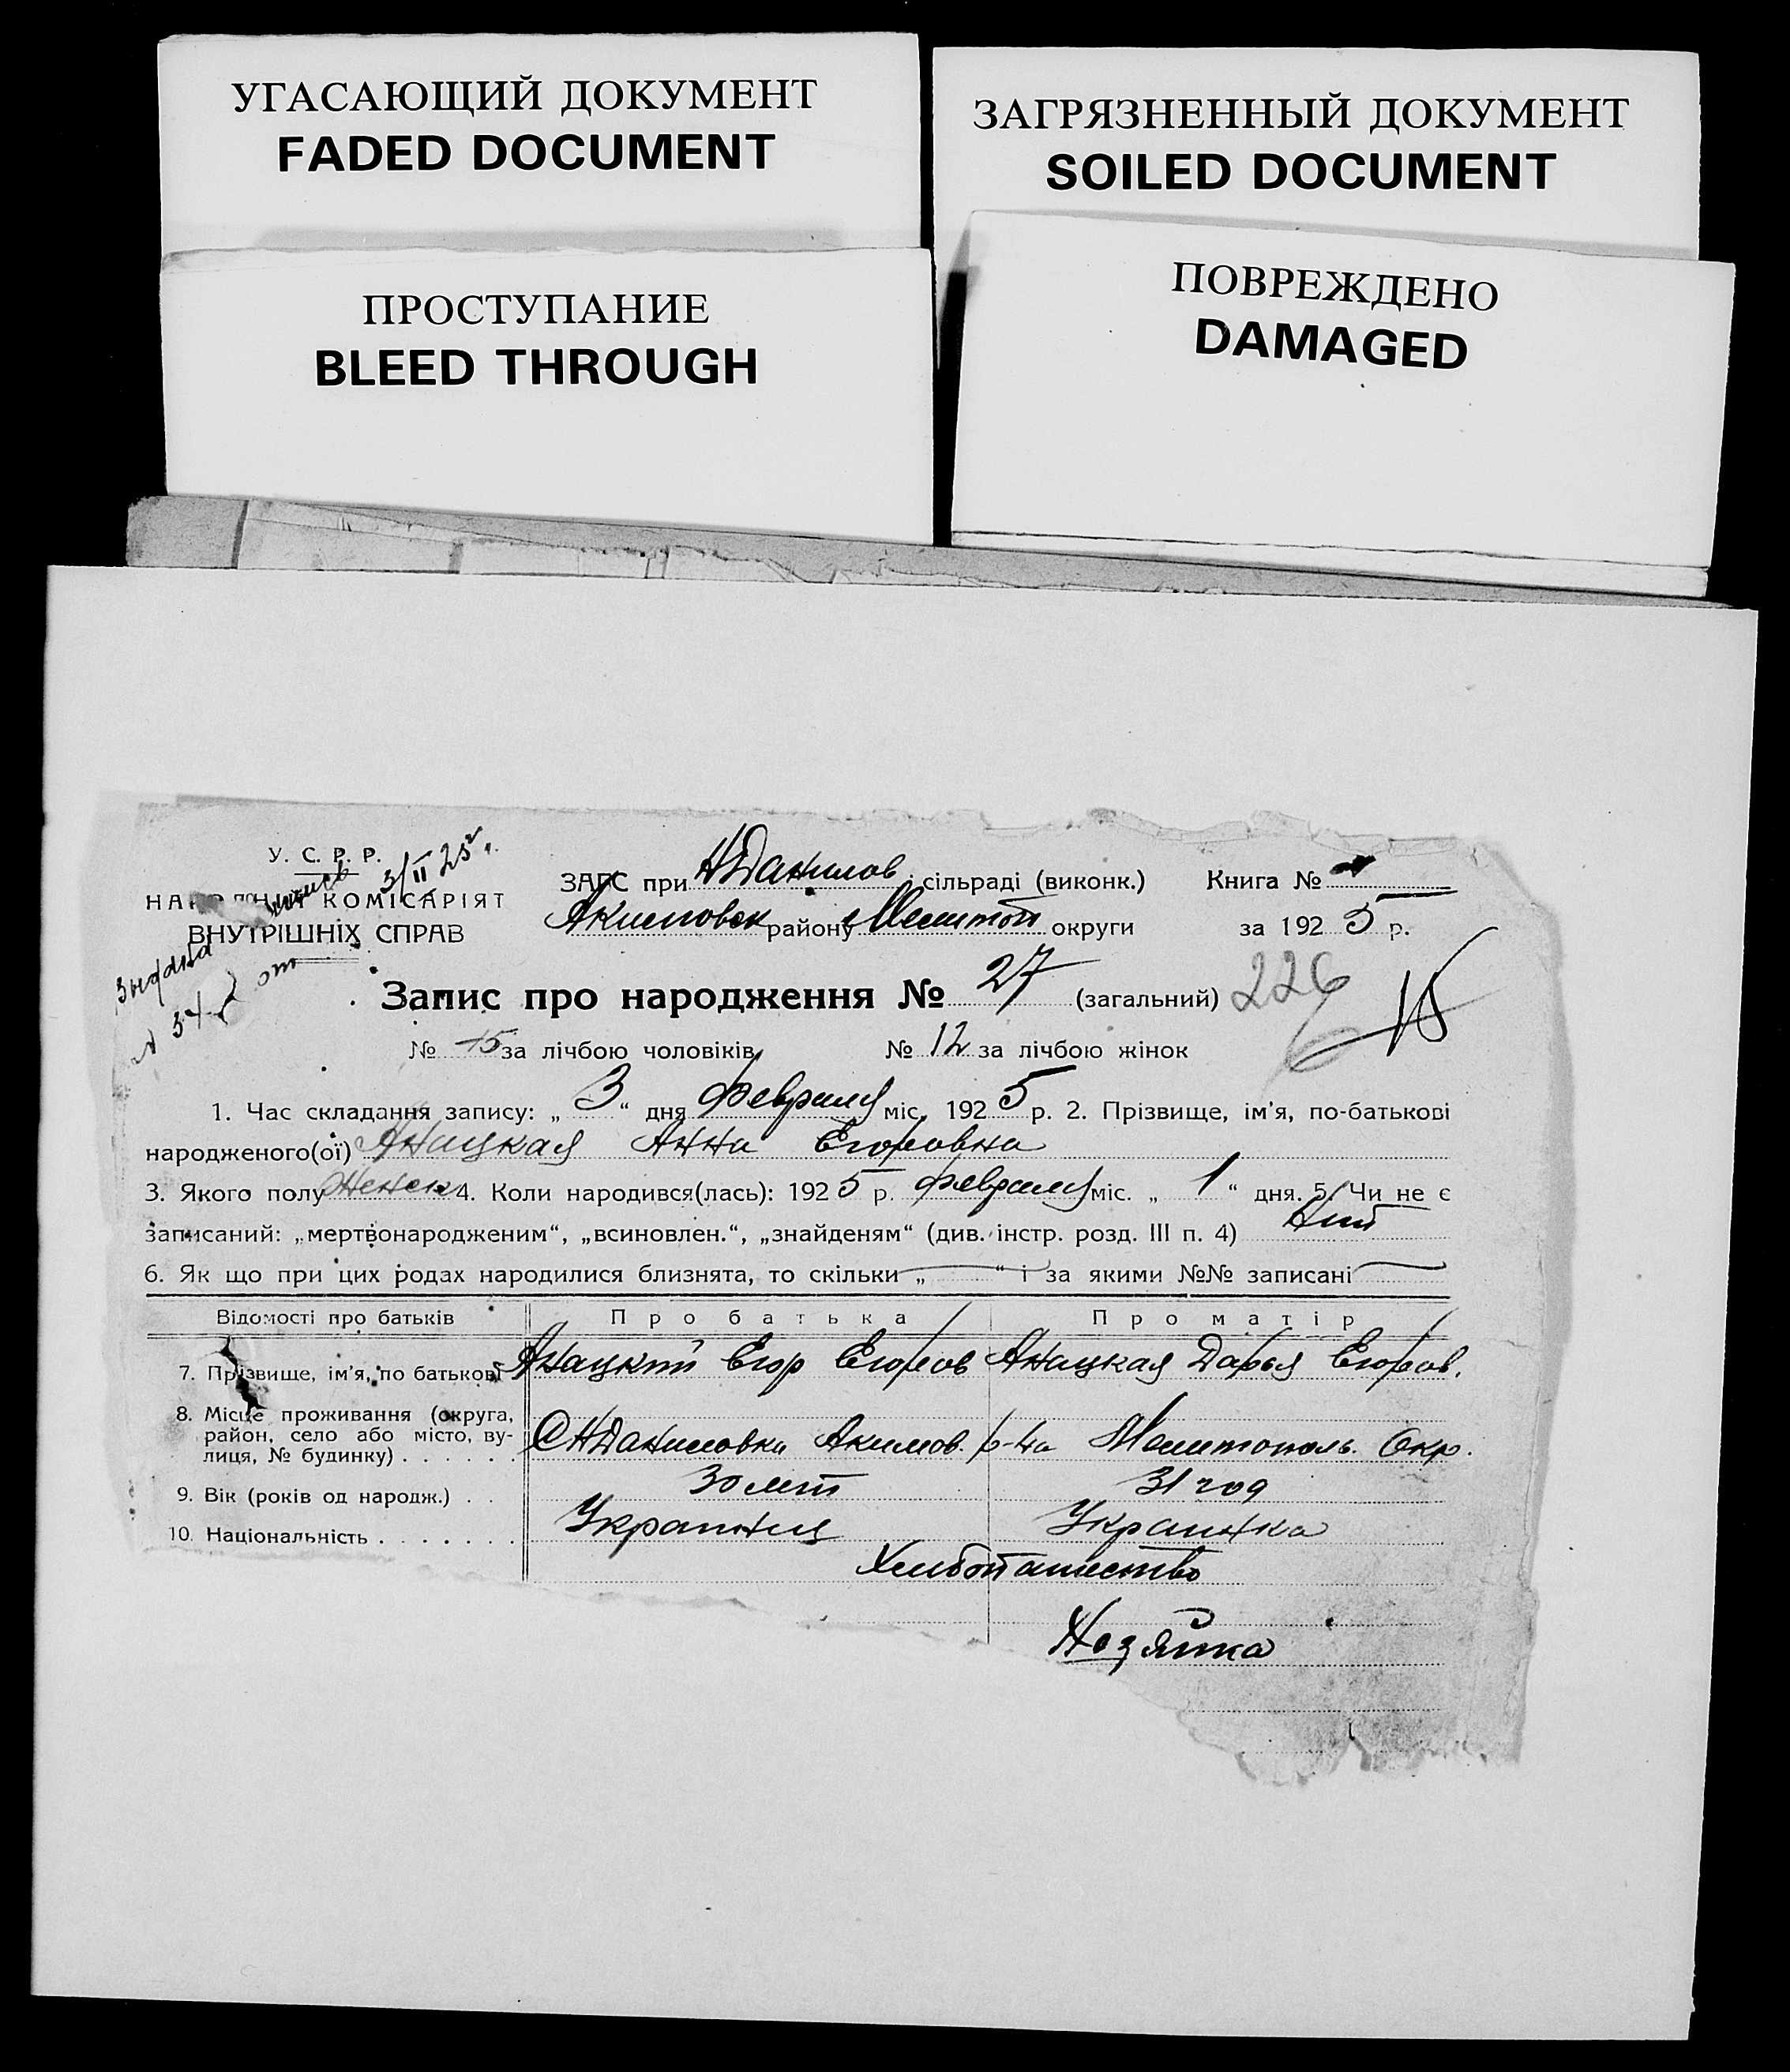 УГАСАЮЩИЙ ДОКУМЕНТ
FADED DOCUMENT
ЗАГРЯЗНЕННЫЙ ДОКУМЕНТ
SOILED DOCUMENT
ПРОСТУПАНИЕ
BLEED THROUGH
ПОВРЕЖДЕНО
DAMAGED
У. С. Р. Р.
КОМІСАРІЯТ
ВНУТРІШНІХ СПРАВ
3/II 25 г.
№ 34 от
ЗАГС при НДанилов. сільраді (виконк.) Книга №
Акимовск району Мелитоп округи за 1925 р.
Запис про народження № 27 (загальний) 226
№ 15 за лічбою чоловіків № 12 за лічбою жінок
1. Час складання запису: „ 3 “ дня Февраля міс. 1925 р. 2. Прізвище, ім'я, по-батькові
народженого(ої) Анацкая Анна Егоровна
3. Якого полу Женск 4. Коли народився(лась): 1925 р. Февраля міс. „ 1 “ дня. 5. Чи не є
записаний: „мертвонародженим“, „всиновлен.“, „знайденям“ (див. інстр. розд. III п. 4) Нит
6. Як що при цих родах народилися близнята, то скільки „ “ і за якими №№ записані
Відомості про батьків Про батька Про матір
7. Прізвище, ім'я, по батькові Анацкий Егор Егоров Анацкая Дарья Егоров.
8. Місце проживання (округа,
район, село або місто, ву-
лиця, № будинку) . . . . . . С НДаниловки Акимов. р-на Мелитополь. Окр.
9. Вік (років од народж.) . . 30 лет 31 год
10. Національність . . . . . . . Украинец Украинка
Хлебопашество
Хозяйка